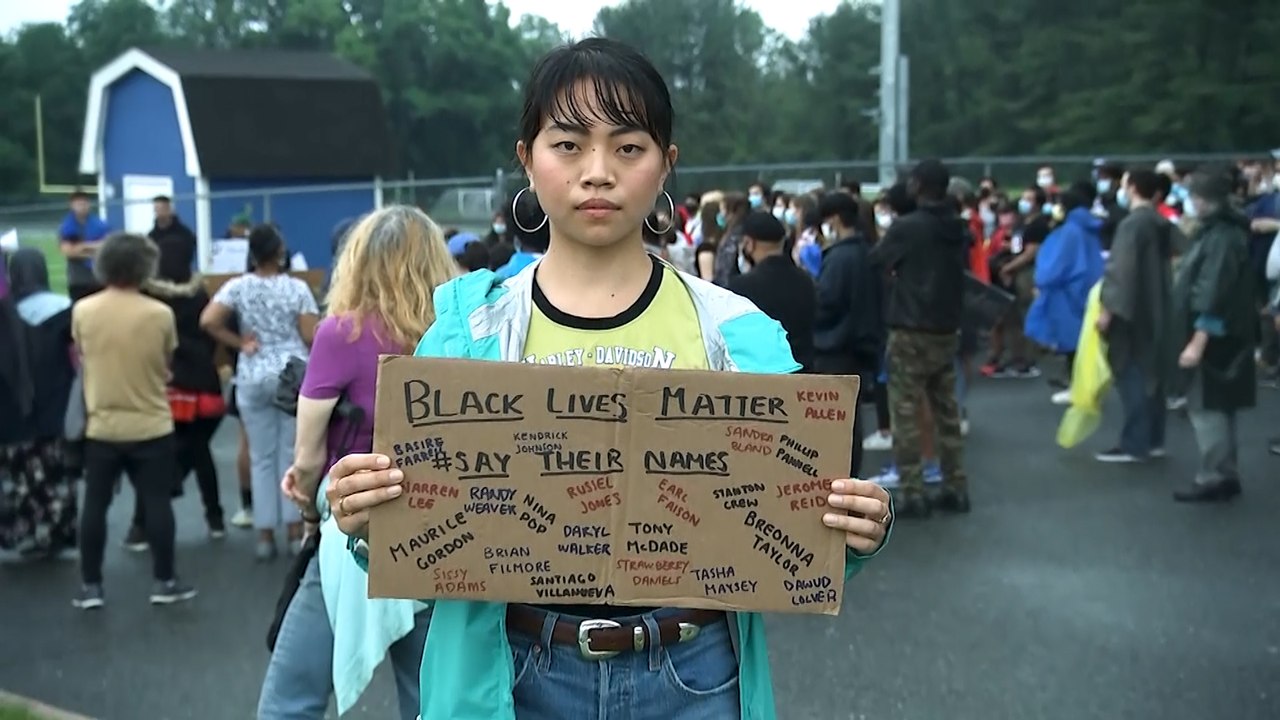 HARLEY-DAVIDSON
BLACK LIVES MATTER
KEVIN
ALLEN
BASIRE
FARREY
KENDRICK
JOHNSON
SANDRA
BLAND
PHILLIP
PANNELL
#SAY THEIR NAMES
DARREN
LEE
RANDY
WEAVER
NINA
POP
RUSSEL
JONES
EARL
FAISON
STANTON
CREW
JEROME
REID
MAURICE
GORDON
BRIAN
FILMORE
DARYL
WALKER
TONY
McDADE
BREONNA
TAYLOR
SISSY
ADAMS
SANTIAGO
VILLANUEVA
STRAWBERRY
DANIELS
TASHA
MAYSEY
DAWUD